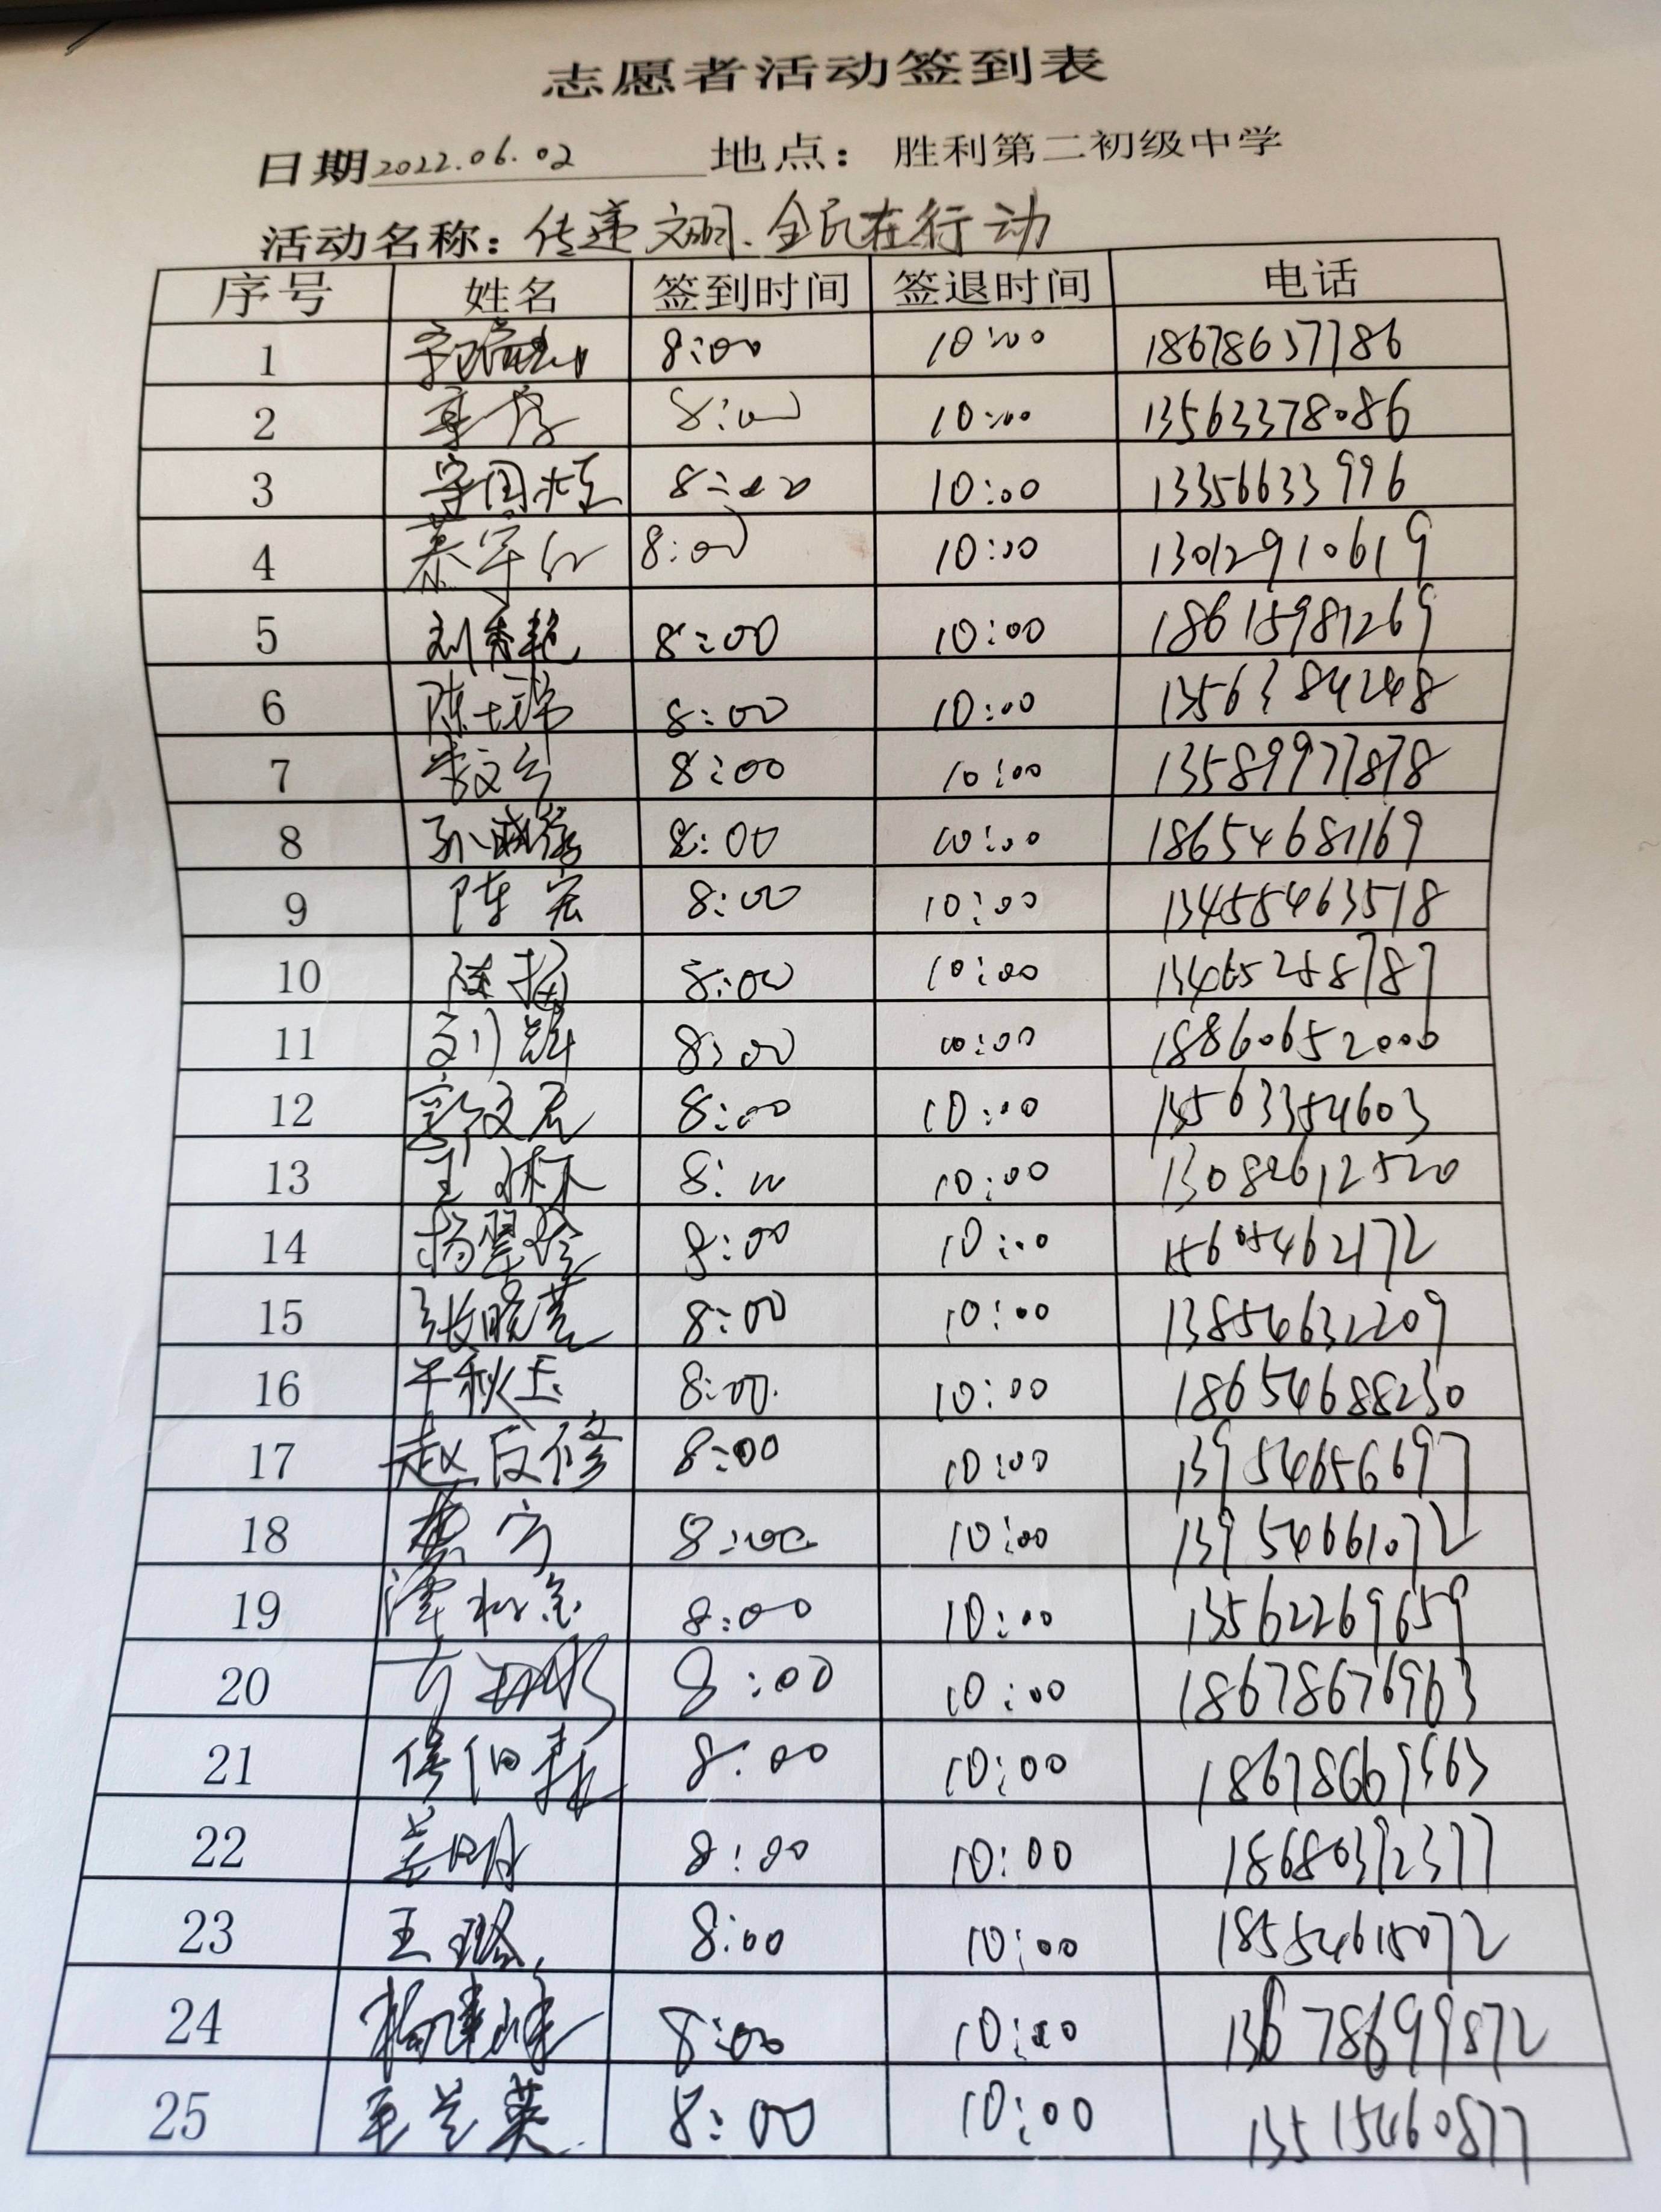 志愿者活动签到表
日期2022.06.02 地点：胜利第二初级中学
活动名称：传递文明.全民在行动
序号 姓名 签到时间 签退时间 电话
1 8:00 10:00 18678637786
2 8:00 10:00 13563378086
3 8:00 10:00 13356633996
4 8:00 10:00 13012910619
5 刘秀艳 8:00 10:00 18615981269
6 陈士瑞 8:00 10:00 1356384248
7 李文兰 8:00 10:00 13589977878
8 8:00 10:00 18654681169
9 陈宏 8:00 10:00 13455463518
10 陈梅 8:00 10:00 13465288787
11 刘辉 8:00 10:00 18860652000
12 郭文君 8:00 10:00 13563354603
13 王林 8:00 10:00 13082612520
14 杨翠玲 8:00 10:00 15605462172
15 张晓芸 8:00 10:00 13854632209
16 于秋玉 8:00 10:00 18654688230
17 赵良修 8:00 10:00 13954656697
18 8:00 10:00 13954661072
19 8:00 10:00 13562269659
20 8:00 10:00 18678676963
21 8:00 10:00 18678669563
22 姜明 8:00 10:00 18680392377
23 王璐 8:00 10:00 18554615072
24 杨建峰 8:00 10:00 13678699872
25 毛兰英 8:00 10:00 13515460877